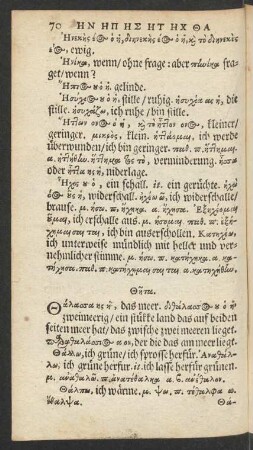 70 ΗΝ ΗΠ ΗΣ ΗΤ ΗΧ ΘΑ
Ἠνεκὴς έ⊙ ὁ ἡ, διηνεκὴς έ⊙ ὁ ἡ, κ τὸ διηνεκὲς
έ⊙, ewig.
Ἡνίκα, wenn/ ohne frage: aber πηνίκα fra=
get/wenn?
Ἤπι⊙ ὁ ἡ, gelinde.
Ἥσυχ⊙ ὁ ἡ, stille/ ruhig. ἡσυχία ας ἡ, die
stille. ἡσυχάζω, ich ruhe/ bin stille.
Ἥττων ον⊙ ὁ ἡ, κ τὸ ἧττον ον⊙, kleiner/
geringer. μικρὸς, klein. ἡττάομαι, ich werde
überwunden/ ich bin geringer.
ἥττημα τ⊙ τὸ, verminderung. ἧσσα
oder ἧττα ης ἡ, niderlage.
Ἦχ⊙ ὁ, ein schall. it. ein gerüchte. ἠχὼ
ἡ, widerschall. ἠχέω ῶ, ich widerschalle/
brause. μ. ἠσω. π. ἤχηκα. α. ἤχησα.
ich erschalle aus.
bin auserschollen. Κατηχέω,
ich unterweise mündlich mit heller und ver=
nehmlicher stimme. μ. ήσω. π. κατήχηκα. α. κα=
τήχησα.
Θῆτα.
Θάλασσα ης ἡ, das meer. διθάλασσ⊙ ὁ ἡ
zweimeerig/ ein stükke land das auf beiden
seiten meer hat/ das zwische zwei meeren lieget.
der die das am meer liegt.
Θάλλω, ich grüne/ ich sprosse herfür. Ἀναθάλ=
λω, ich grüne herfür. it. ich lasse herfür grünen.
μ. ἀναθαλῶ. π. ἀνατέθαλκα α. β. ἀνέθαλον.
Θάλπω, ich wärme. μ. ψω. π. τέθαλφα α.
ἔθαλψα.
Θά=